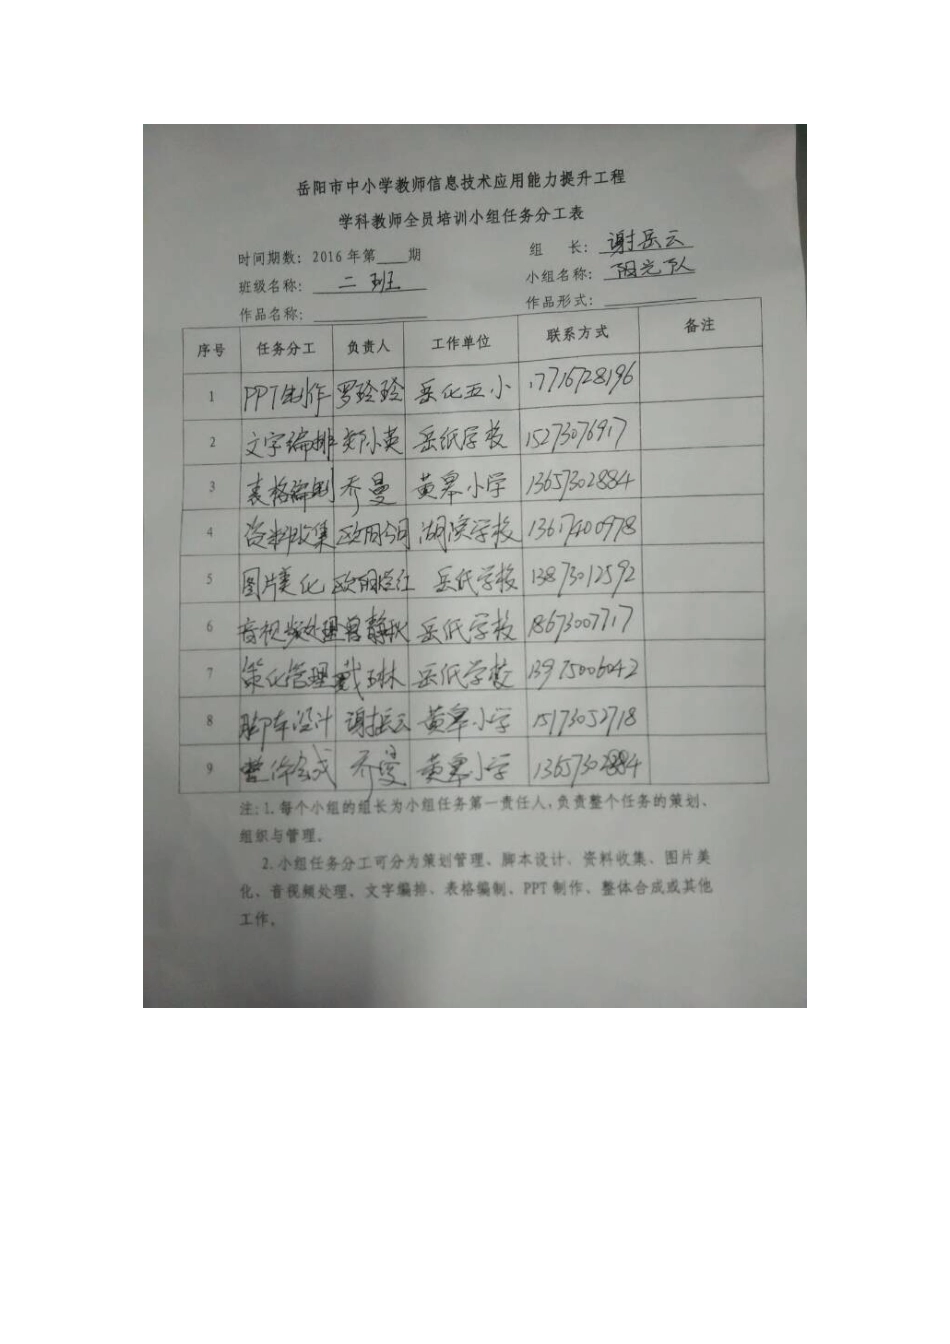 岳阳市中小学教师信息技术应用能力提升工程
学科教师全员培训小组任务分工表
时间期数：2016年第____期 组 长：谢岳云
班级名称：二班 小组名称：阳光下队
作品名称： 作品形式：
序号 任务分工 负责人 工作单位 联系方式 备注
1 PPT制作 罗玲玲 岳化五小 17716728196
2 文字编排 郑小英 岳纸学校 15273076917
3 表格编制 乔曼 黄皋小学 13657302884
4 资料收集 湖滨学校 13617400978
5 图片美化 岳纸学校 13873012592
6 音视频处理 曾静 岳纸学校 18673007717
7 策化管理 戴琳 岳纸学校 13975006042
8 脚本设计 谢岳云 黄皋小学 15173052718
9 整体合成 乔曼 黄皋小学 13657302884
注：1.每个小组的组长为小组任务第一责任人，负责整个任务的策划、
组织与管理。
2.小组任务分工可分为策划管理、脚本设计、资料收集、图片美
化、音视频处理、文字编排、表格编制、PPT制作、整体合成或其他
工作。